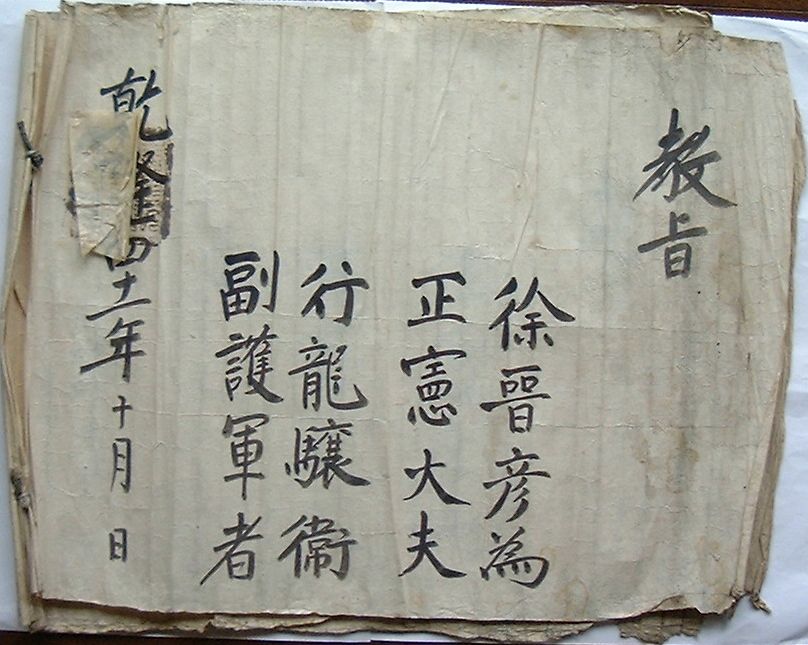 敎旨
徐晉彦為
正憲大夫
行龍驤衛
副護軍者
乾隆四十二年十月 日